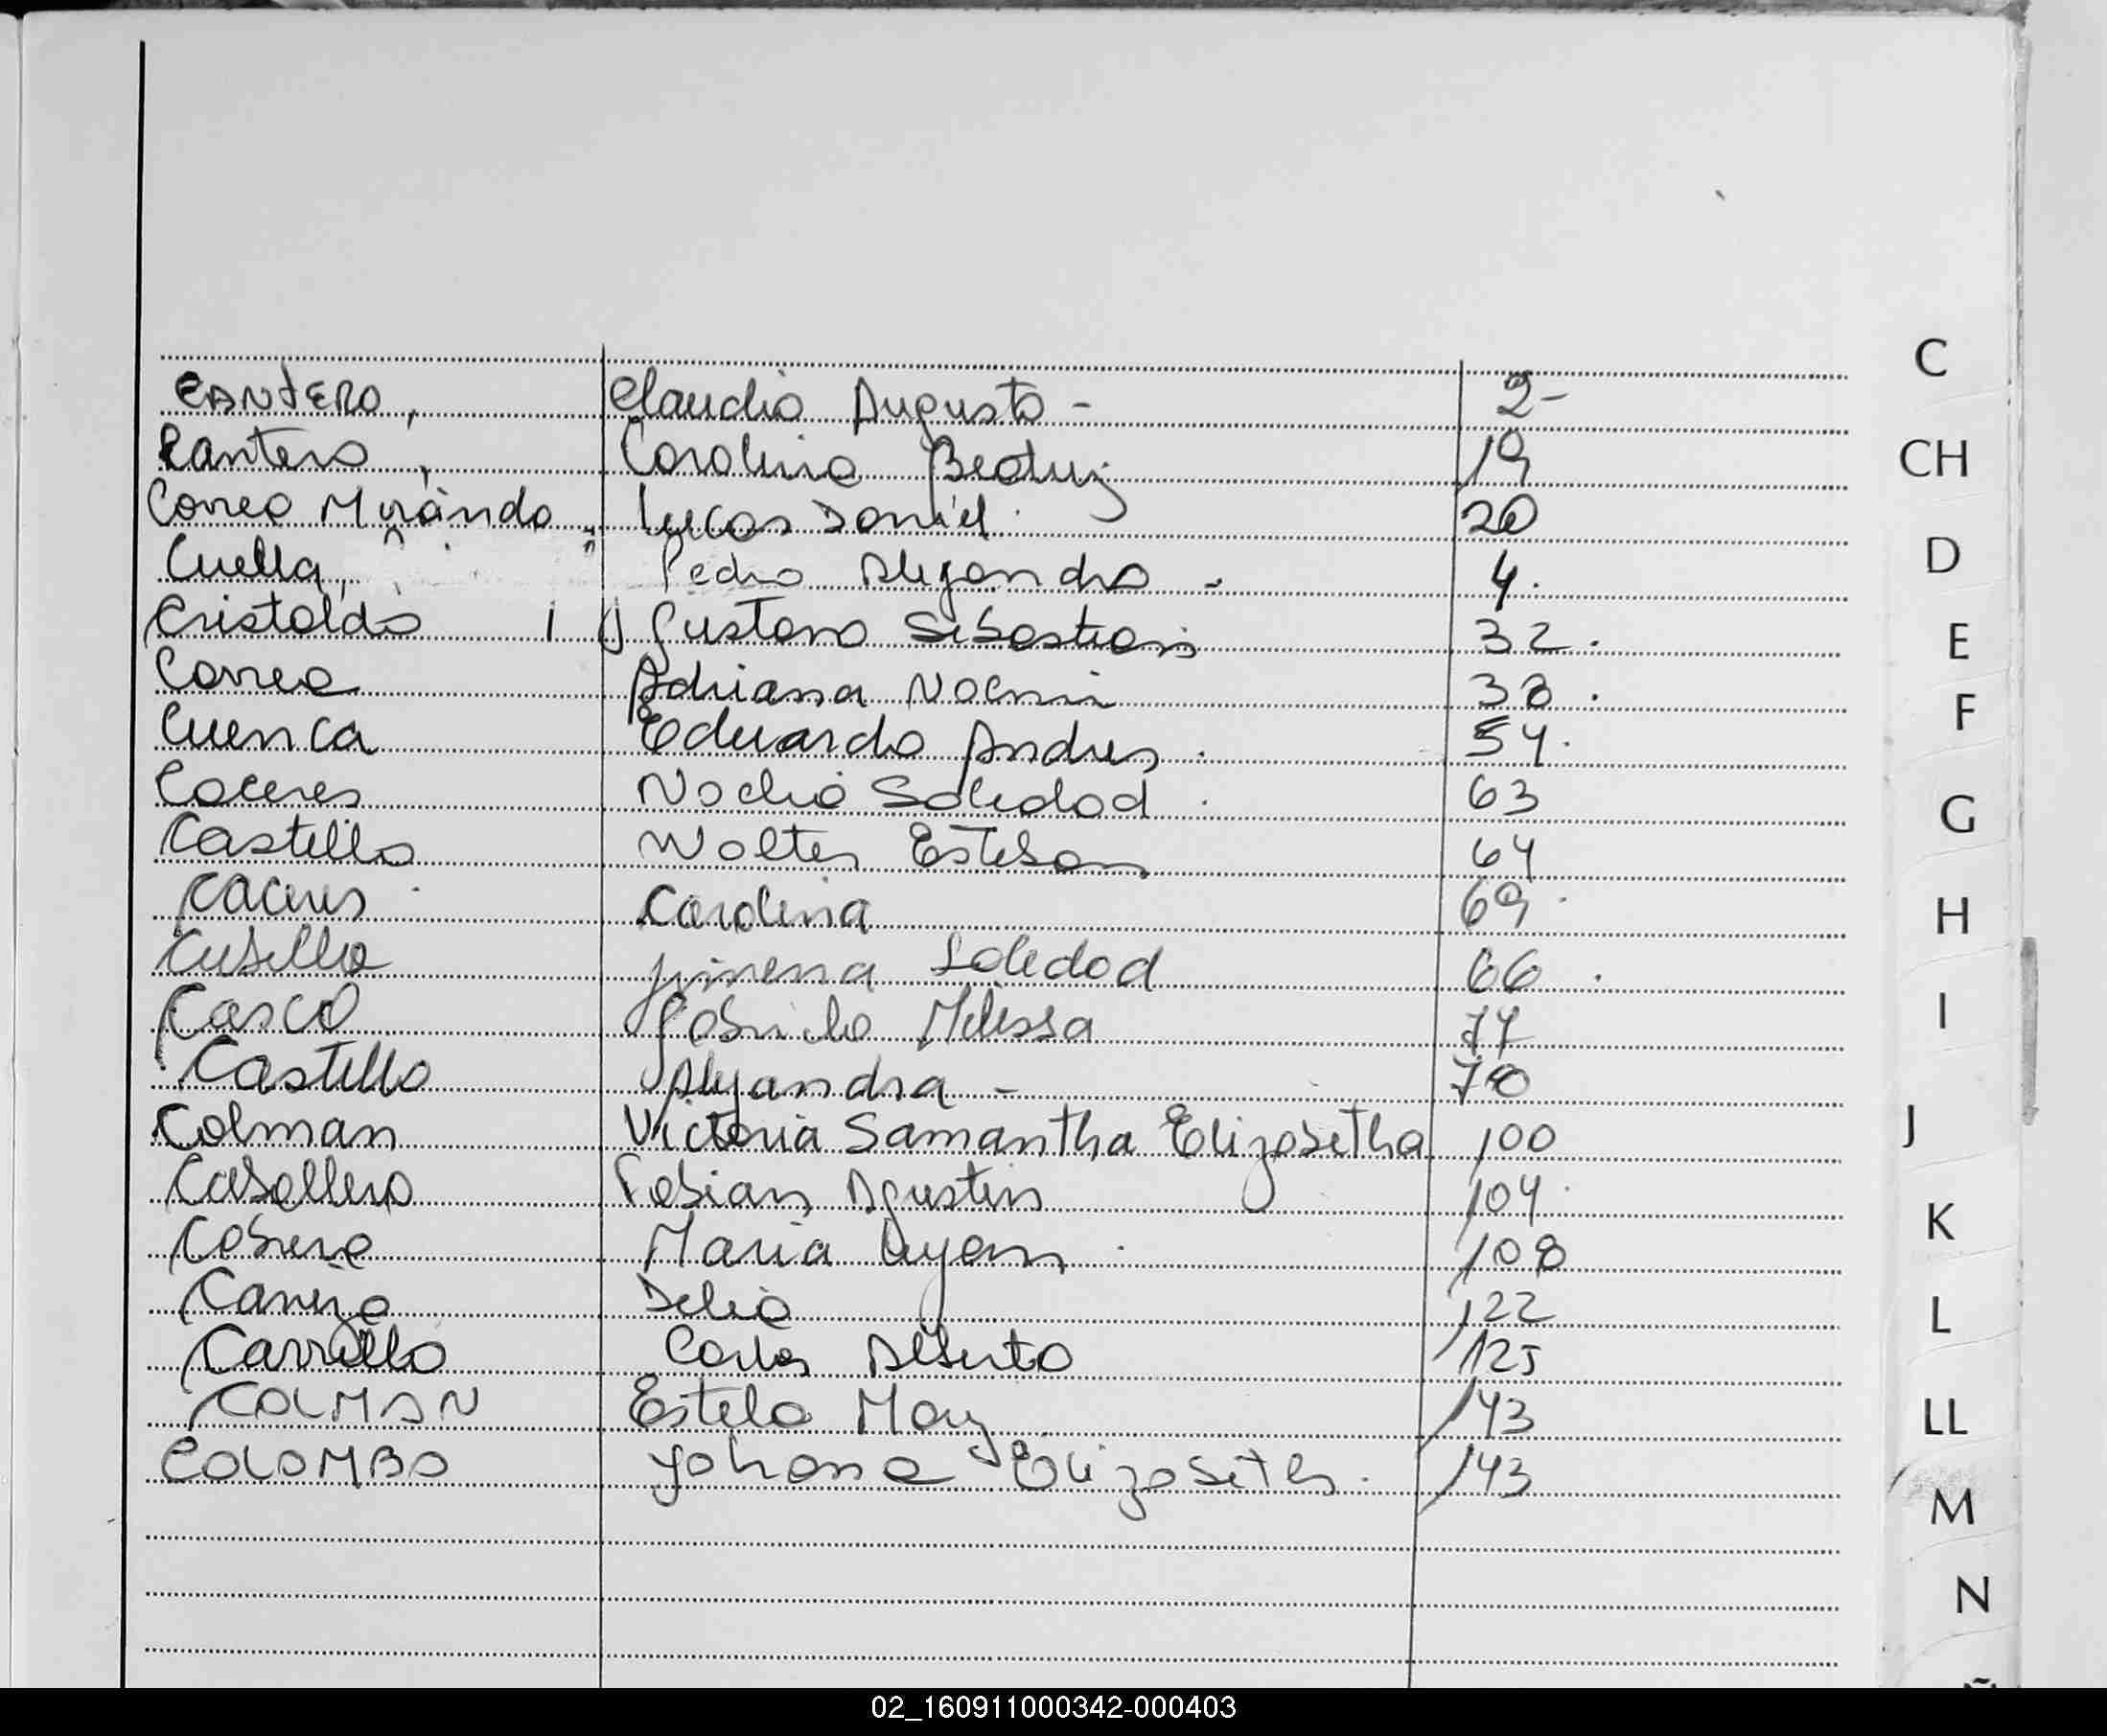 CANTERO, Claudio Augusto - 2-
Cantero, Carolina Beatriz 19
Correa Miranda, Lucas Daniel. 20
Cuella, Pedro Alejandro - 4.
Cristaldo Gustavo Sebastian 32.
Correa Adriana Noemi 38.
Cuenca Eduardo Andres. 54.
Caceres Nadia Soledad. 63
Castillo Walter Esteban 64
Caceres Carolina 69.
Cubilla Jimena Soledad 66.
Casco Gabriela Melissa 77
Castillo Alejandra - 78
Colman Victoria Samantha Elizabetha 100
Caballero Fabian Agustin 104.
Cabrera Maria Luján. 108
Delia 122
Carrillo Carlos Alberto 125
COLMAN Estela Mary 143
COLOMBO Johana Elizabeth. 143
C
CH
D
E
F
G
H
I
J
K
L
LL
M
N
02_160911000342-000403